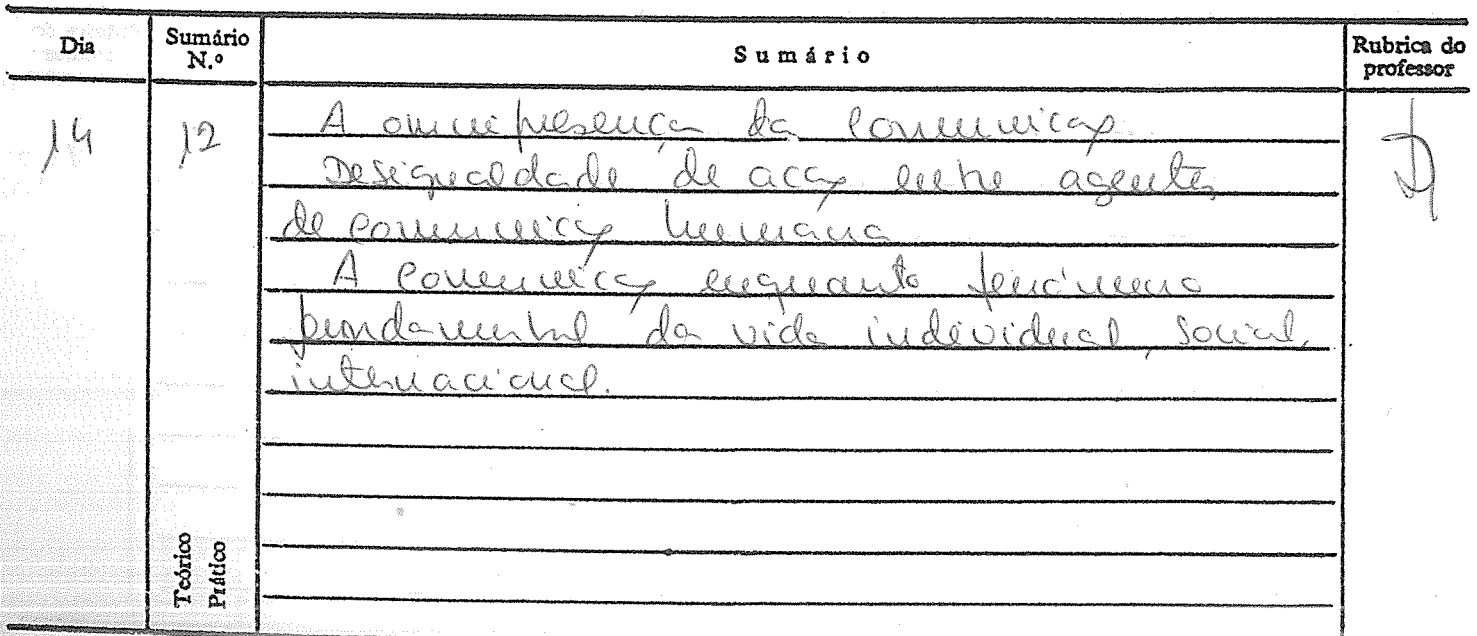 Dia Sumário N.º Sumário Rubrica do professor
14 12 A omnipresença da comunicação
Desigualdade de acção entre agentes
de comunicação humana
A comunicação enquanto fenómeno
fundamental da vida individual, social,
internacional.
Teórico
Prático